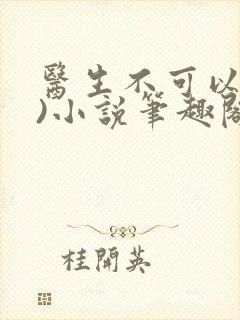 醫生不可以
)小說筆趣閣
桂開英